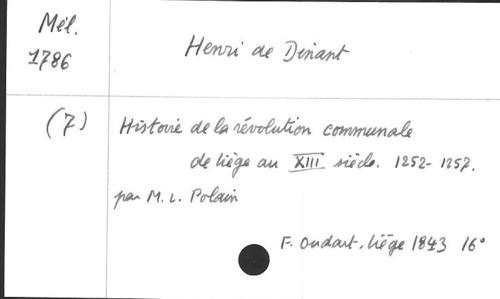 Mél.
1786
Henri de Dinant
(7)
Histoire de la révolution communale
de liège au XIII siècle. 1252-1257.
par M. L. Polain
F. Oudart, liége 1843 16°